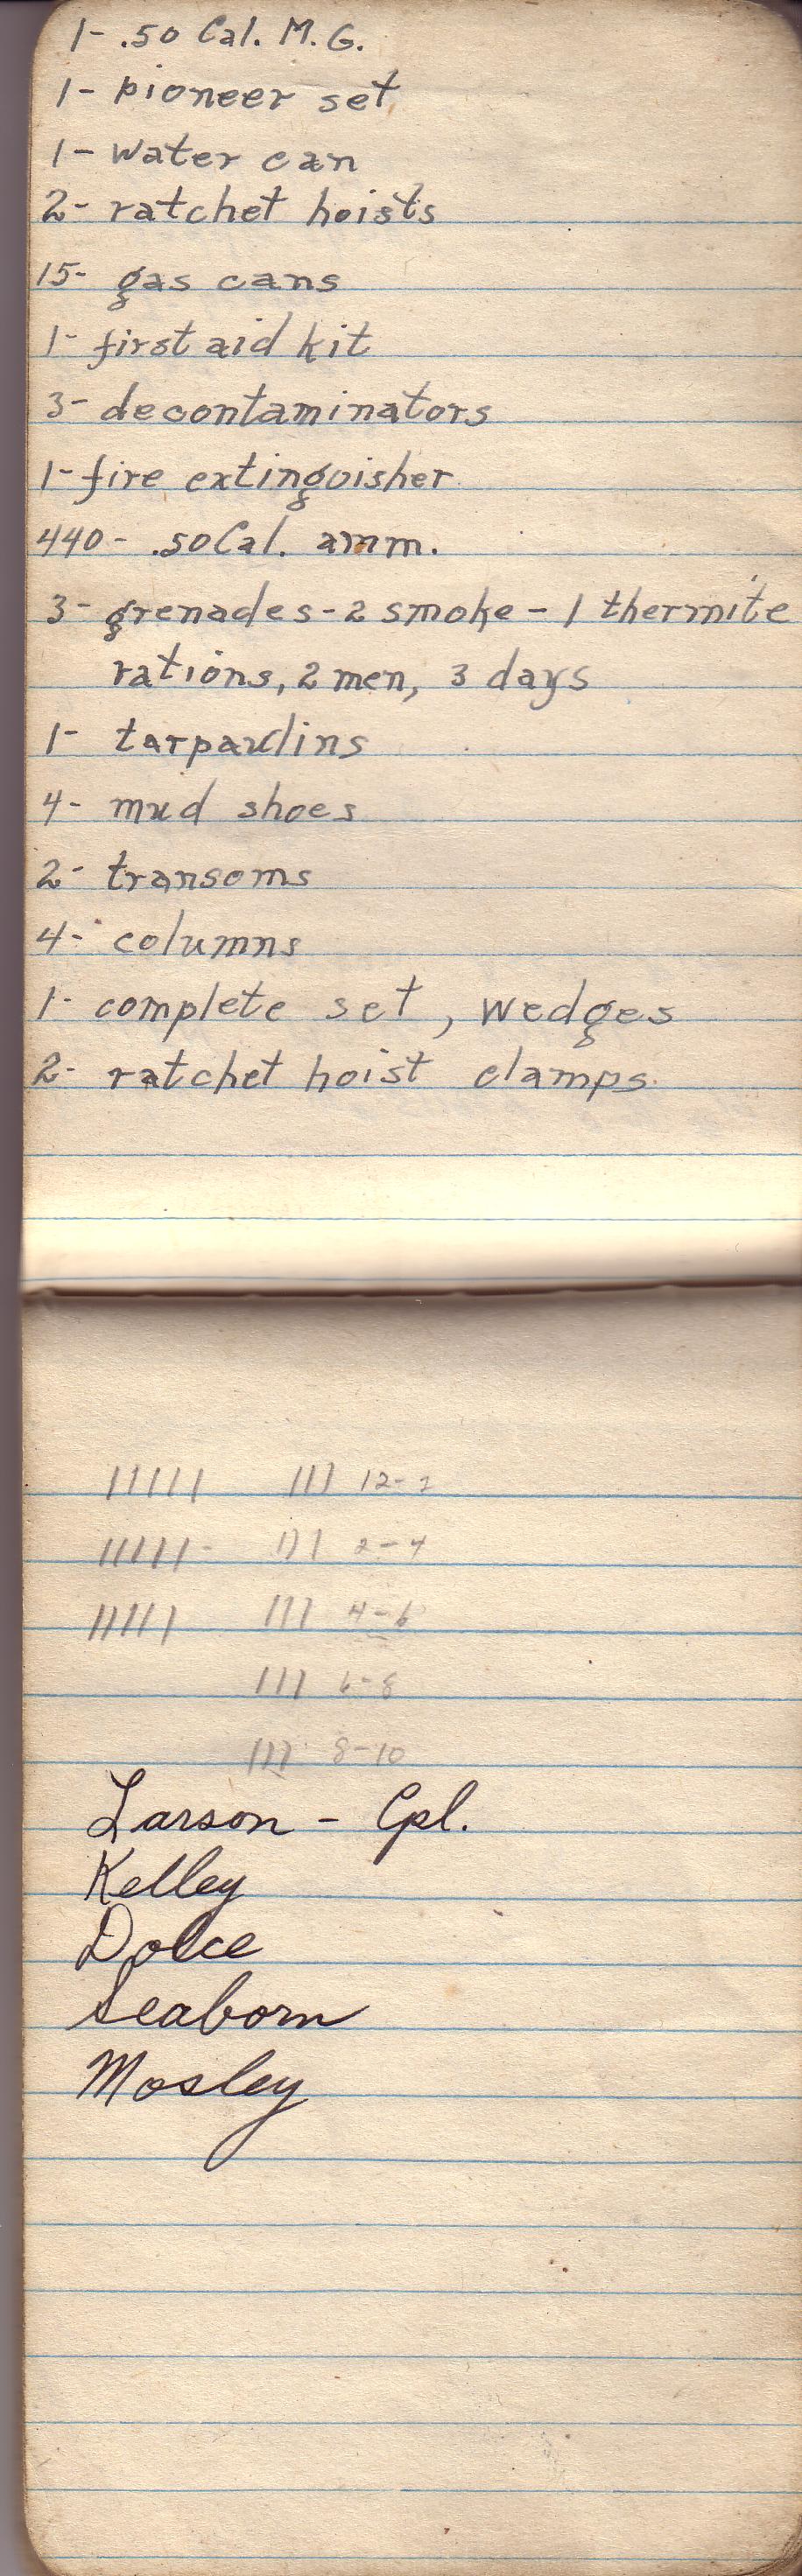 1- .50 Cal. M.G.
1- pioneer set
1- water can
2- ratchet hoists
15- gas cans
1- first aid kit
3- decontaminators
1- fire extinguisher
440- .50 Cal. amm.
3- grenades - 2 smoke - 1 thermite
rations, 2 men, 3 days
1- tarpaulins
4- mud shoes
2- transoms
4- columns
1- complete set, wedges
2- ratchet hoist clamps
||||| ||| 12-2
||||| - ||| 2-4
||||| ||| 4-6
||| 6-8
||| 8-10
Larson - Cpl.
Kelley
Dolce
Seaborn
Mosley